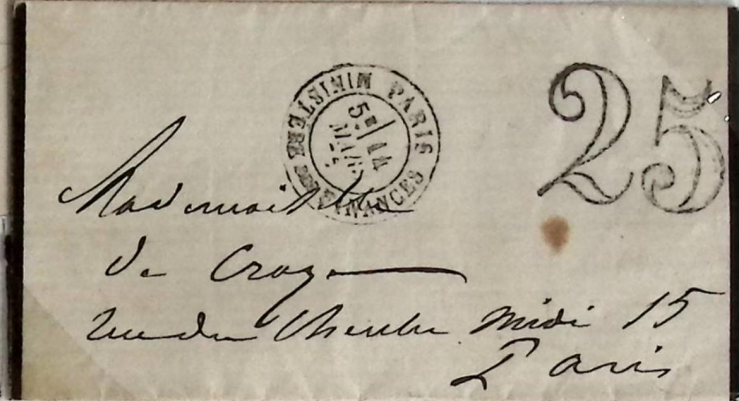 PARIS MINISTERE DES FINANCES
5E 14
MARS
25
Mademoiselle
de Croze
rue du Cherche Midi 15
Paris